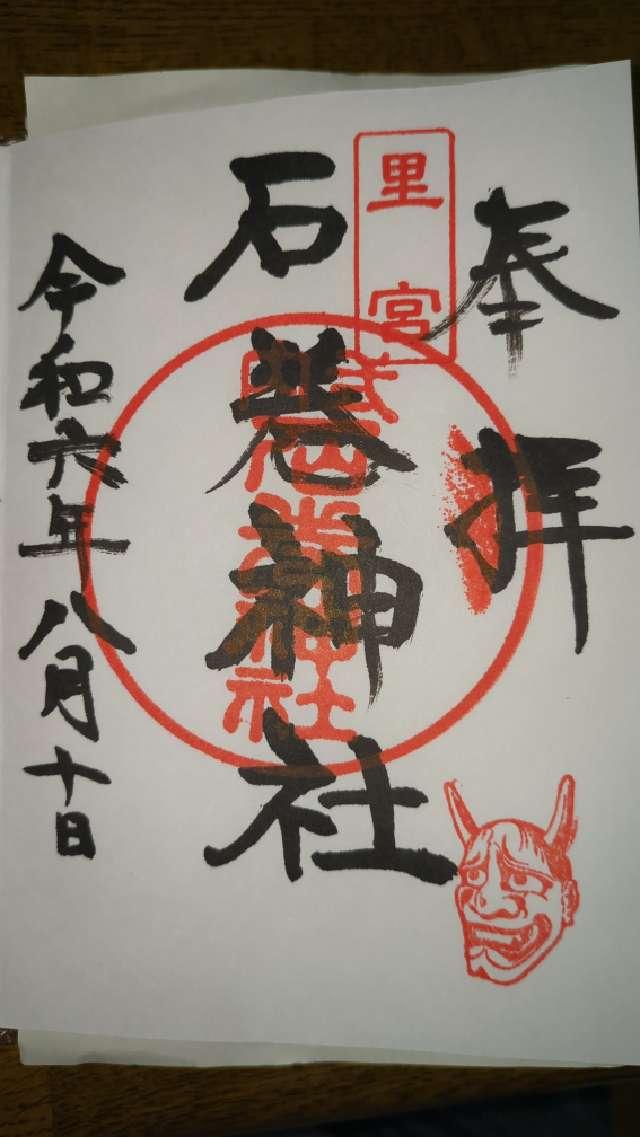 奉拝
里宮
石巻神社
令和六年八月十日